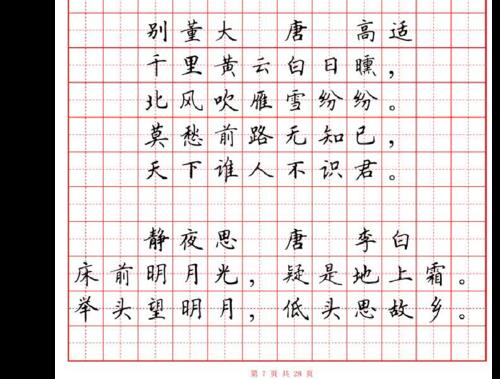 别董大 唐 高适
千里黄云白日曛，
北风吹雁雪纷纷。
莫愁前路无知已，
天下谁人不识君。
静夜思 唐 李白
床前明月光，疑是地上霜。
举头望明月，低头思故乡。
第 7 页 共 28 页